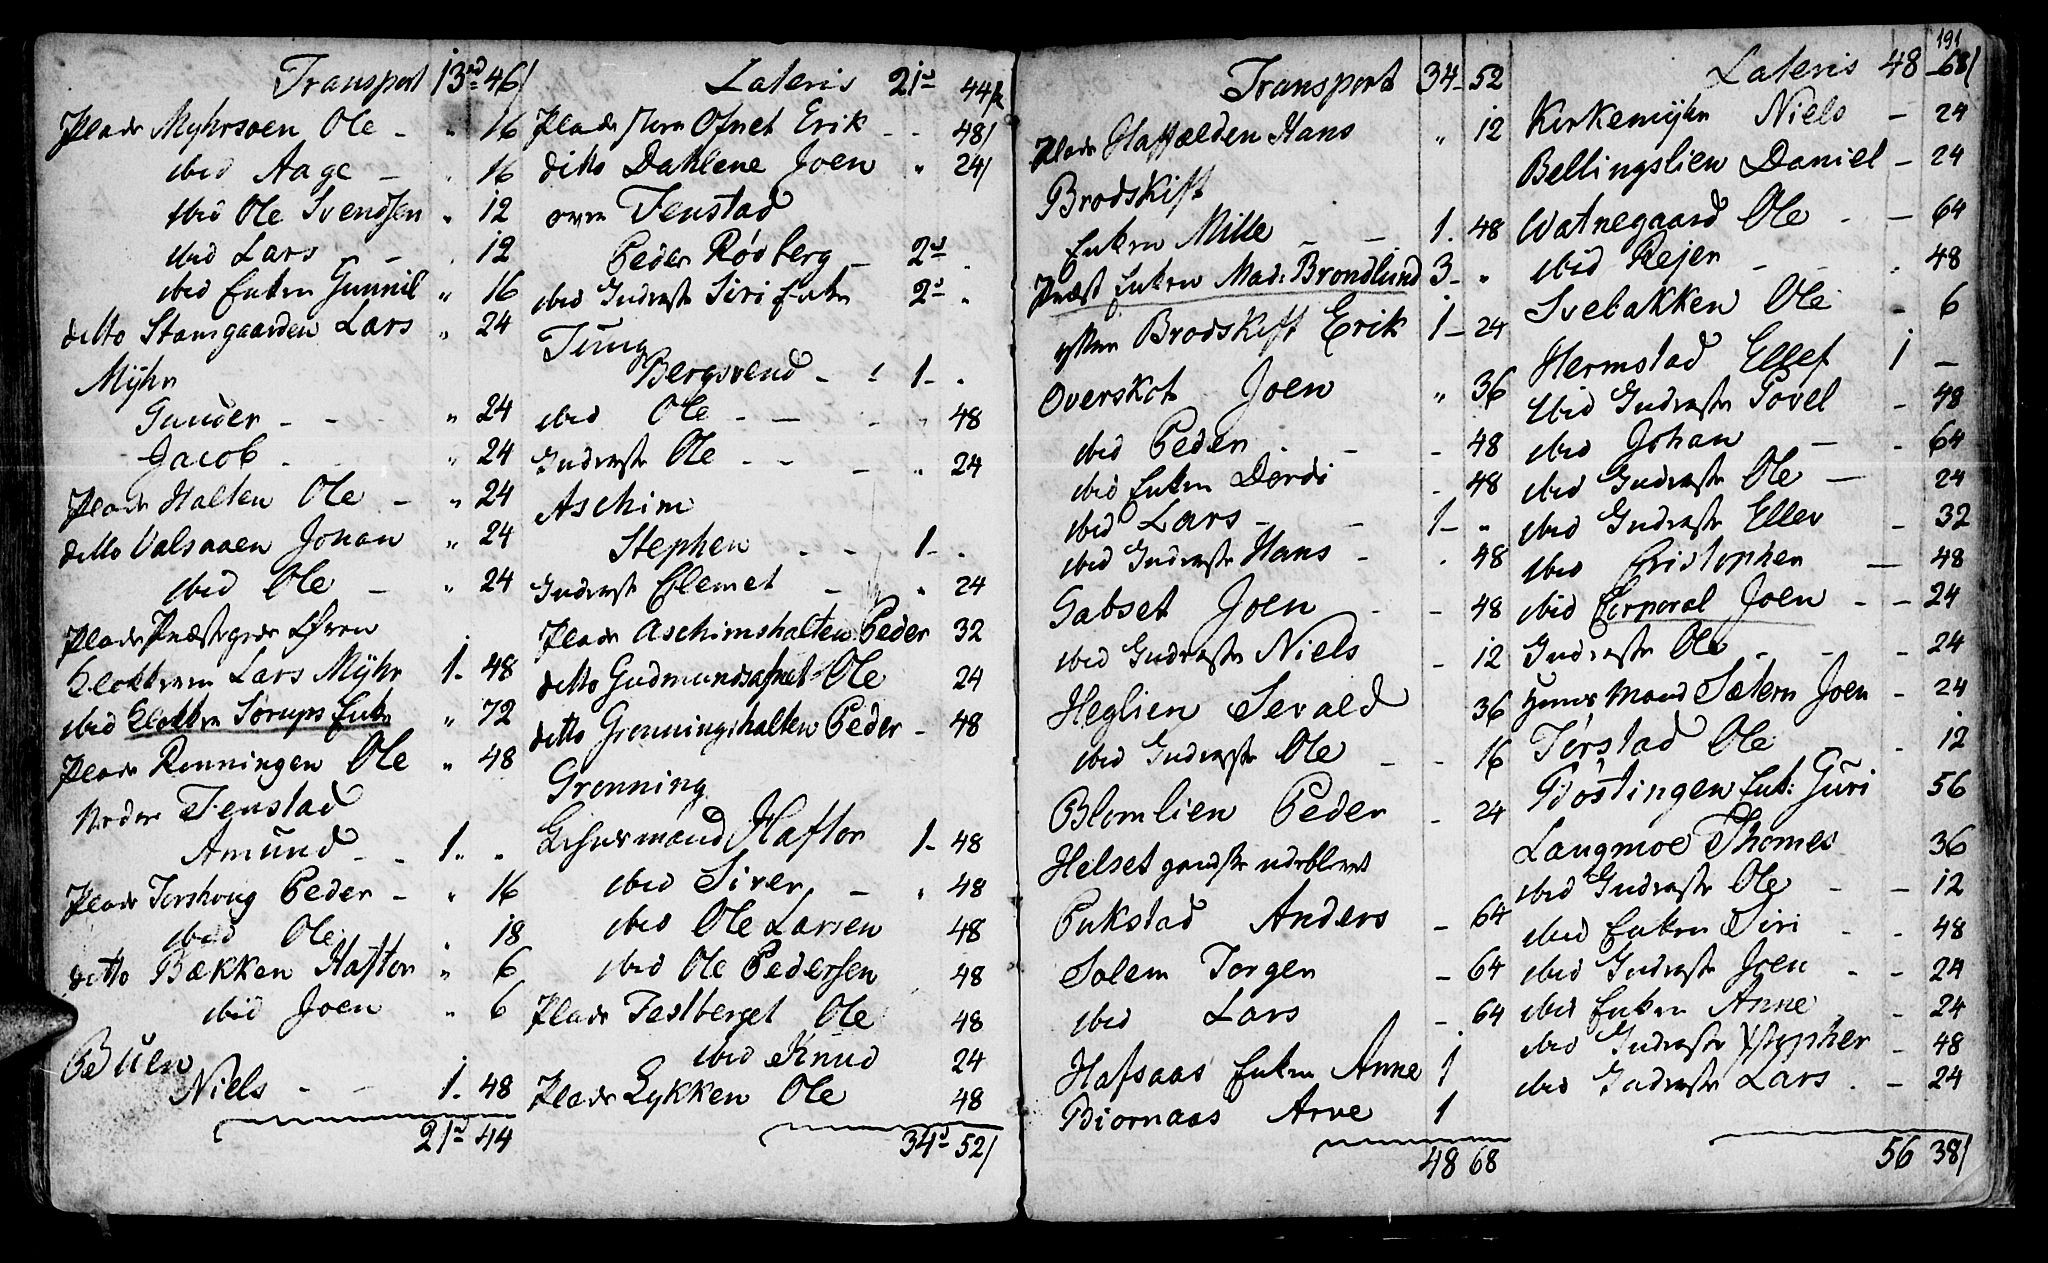 Transport 13rd 46/
Plads Myhrsoen Ole - " 16
ibid Aage - " 16
ibid Ole Svendsen " 12
ibid Lars - - " 12
ibid Enken Gunnil " 16
ditto Stamgaarden Lars " 24
Myhr
Gunder - - - " 24
Jacob - - " 24
Plads Halten Ole - " 24
ditto Valsaaen Johan " 24
ibid Ole - " 24
Plads Præstegrds Øvren
Klokkeren Lars Myhr 1. 48
ibid Klokkr Sorups Enke " 72
Plads Ronningen Ole " 48
Neder Fenstad
Amund - - 1. "
Plads Torshoug Peder - " 16
ibid Ole " 18
ditto Bækken Haftor " 6
ibid Joen " 6
Buen
Niels - - 1. 48
21d 44
Lateris 21d 44/
Plads Ofnet Erik - - 48/
ditto Dahlene Joen " 24/
over Fenstad
Peder Rødberg - 2d "
ibid Inderste Siri Enke 2d "
Tung
Bergsvend - 1- "
ibid Ole - - - " 48
Inderste Ole - - - " 24
Aschim
Stephen - - 1- "
Inderste Clemet - " 24
Plads Aschimshalten Peder 32
ditto Gudmundsafnet Ole 24
ditto Gronningshalten Peder - 48
Gronning
Giesvermand Haftor 1- 48
ibid Siver - " 48
ibid Ole Larsen 48
ibid Ole Pedersen 48
Plads Testberget Ole 48
ibid Knud 24
Plads Lykken Ole 48
34d 52/
Transport 34- 52
Plads Haffælden Hans " 12
Brodskift
Enken Mille - - 1. 48
Præst Enken Mad: Brondlund 3- "
Brodskift Erik 1- 24
Overskot Joen " 36
ibid Peder - - 48
ibid Enken Dordi - 48
ibid Lars - - 1- "
ibid Inderste Hans - - 48
Gabset Joen - - 48
ibid Inderste Niels - 12
Heglien Sevald 36
ibid Inderste Ole - - 16
Blomlien Peder - 24
Helset gandske udeblevet
Pukstad Anders - 64
Solem Jorgen - 64
ibid Lars - 64
Hafsaas Enken Anne 1
Biornaas Arve 1
48 68
191
Lateris 48 - 68/
Kirkemyhr Niels - 24
Bellingslien Daniel - 24
Watnegaard Ole - - 64
ibid Rejer - - - 48
Svebakken Ole - 6
Hermstad Ellef 1 -
ibid Inderste Povel - 48
ibid Johan - - 64
ibid Inderste Ole - 24
ibid Inderste Ellev - 32
ibid Cristopher - 48
ibid Corporal Joen - - 24
Inderste Ole - - - 24
Huus Mand Sætern Joen - 24
Torstad Ole - 12
Giostingen Enk: Guri 56
Langmoe Thomes 36
ibid Inderste Ole - - 12
ibid Enken Siri - - 48
ibid Inderste Joen - - 24
ibid Enken Anne - 24
ibid Inderste Xstopher - 48
ibid Inderste Lars - - 24
56 38/